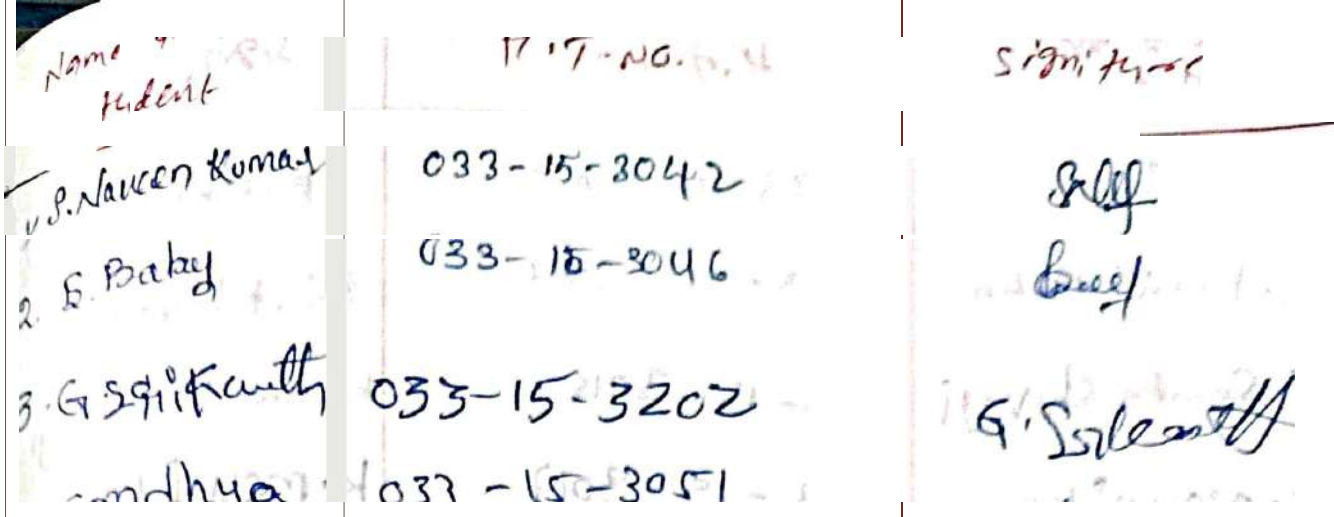 Name
H.T. NO.
signiture
1. S. Naveen Kumar 033-15-3042
2. B. Baby 033-15-3046
3. G Srikanth 033-15-3202 G. Srikanth
033-15-3051